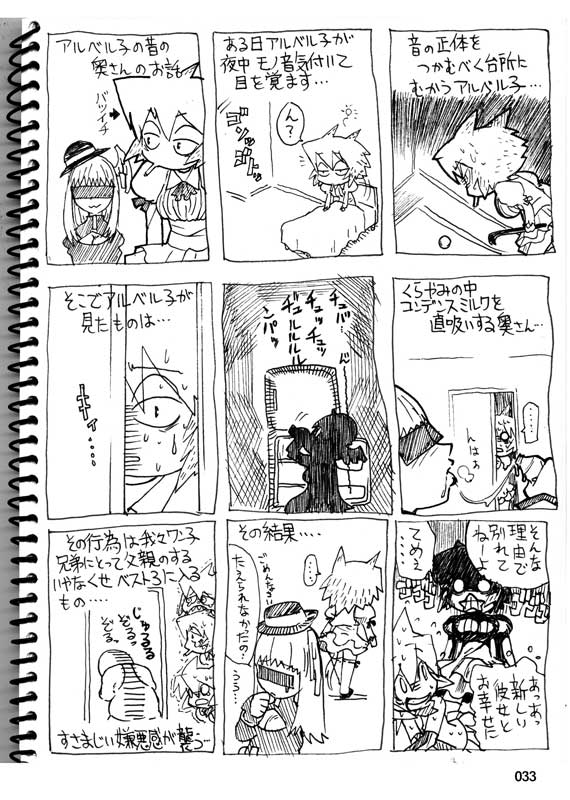 アルベル子の昔の
奥さんのお話
バツイチ
ある日アルベル子が
夜中モノ音気付いて
目を覚ます…
ゴソッ
ゴソッ
ん?
音の正体を
つかむべく台所に
むかうアルベル子…
そこでアルベル子が
見たものは…
キィ……
チュバ…
チュッ
チュッ
ヂュルルルル
ンパッ
ん…
くらやみの中
コンデンスミルクを
直吸いする奥さん…
……
んはぁ
その行為は我々ワン子
兄弟にとって父親のする
いやなくせベスト3に入る
もの…
じゅるる
ぞる
ぞるっ
すさまじい嫌悪感が襲う…
その結果…
……
ごめんなさい
たえられなかったの…
うう…
そんな
理由で
別れて
ねーよ
てめえ
あっあっ
新しい
彼せと
お幸せに
033